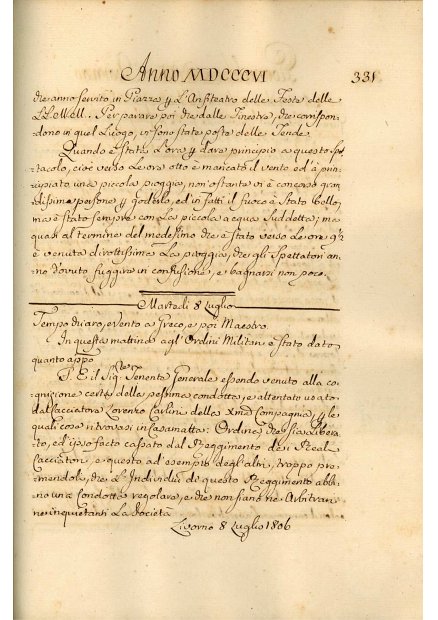 Anno MDCCCVI 331
che anno servito in Piazza p L'Anfiteatro delle Feste delle
LL.MM. Per parare poi che dalle Finestre, che corrispon-
dono in quel Luogo, vi sono state poste delle Tende.
Quando è stata L'ora p dare principio a questo Spet-
tacolo, cioè verso Le ore otto è mancato il vento ed à prin-
cipiato una piccola pioggia, non'ostante vi è concorso gran-
dissime persone p goderlo, ed in fatti il fuoco è stato bello,
ma è stato sempre con La piccola acqua suddetta; ma
quasi al termine del medesimo che è stato verso Le ore 9½
è venuta dirottissima La pioggia, che gli Spettatori an-
no dovuto fuggire in confusione, e bagnarsi non poco.
Martedì 8 Luglio
Tempo chiaro, e vento a Greco, e poi Maestro.
In questa mattina agl'Ordini Militari è stato dato
quanto app.o
S. E. il Sig.re Tenente Generale essendo venuto alla co-
gnizione certa della pessima condotta, e attentato usato
dal Cacciatore Lorenzo Carlini della Compagnia, p le
quali cose ritrovasi in Casamatta: Ordine, che sia Libera-
to, ed ipso facto cassato dal Reggimento dei Real
Cacciatori, e questo ad esempio degl'altri, troppo pre-
mendole, che gl'Individui di questo Reggimento abbi-
no una Condotta regolare, e che non siano ne Arbitrari
ne inquietanti La Società
Livorno 8 Luglio 1806